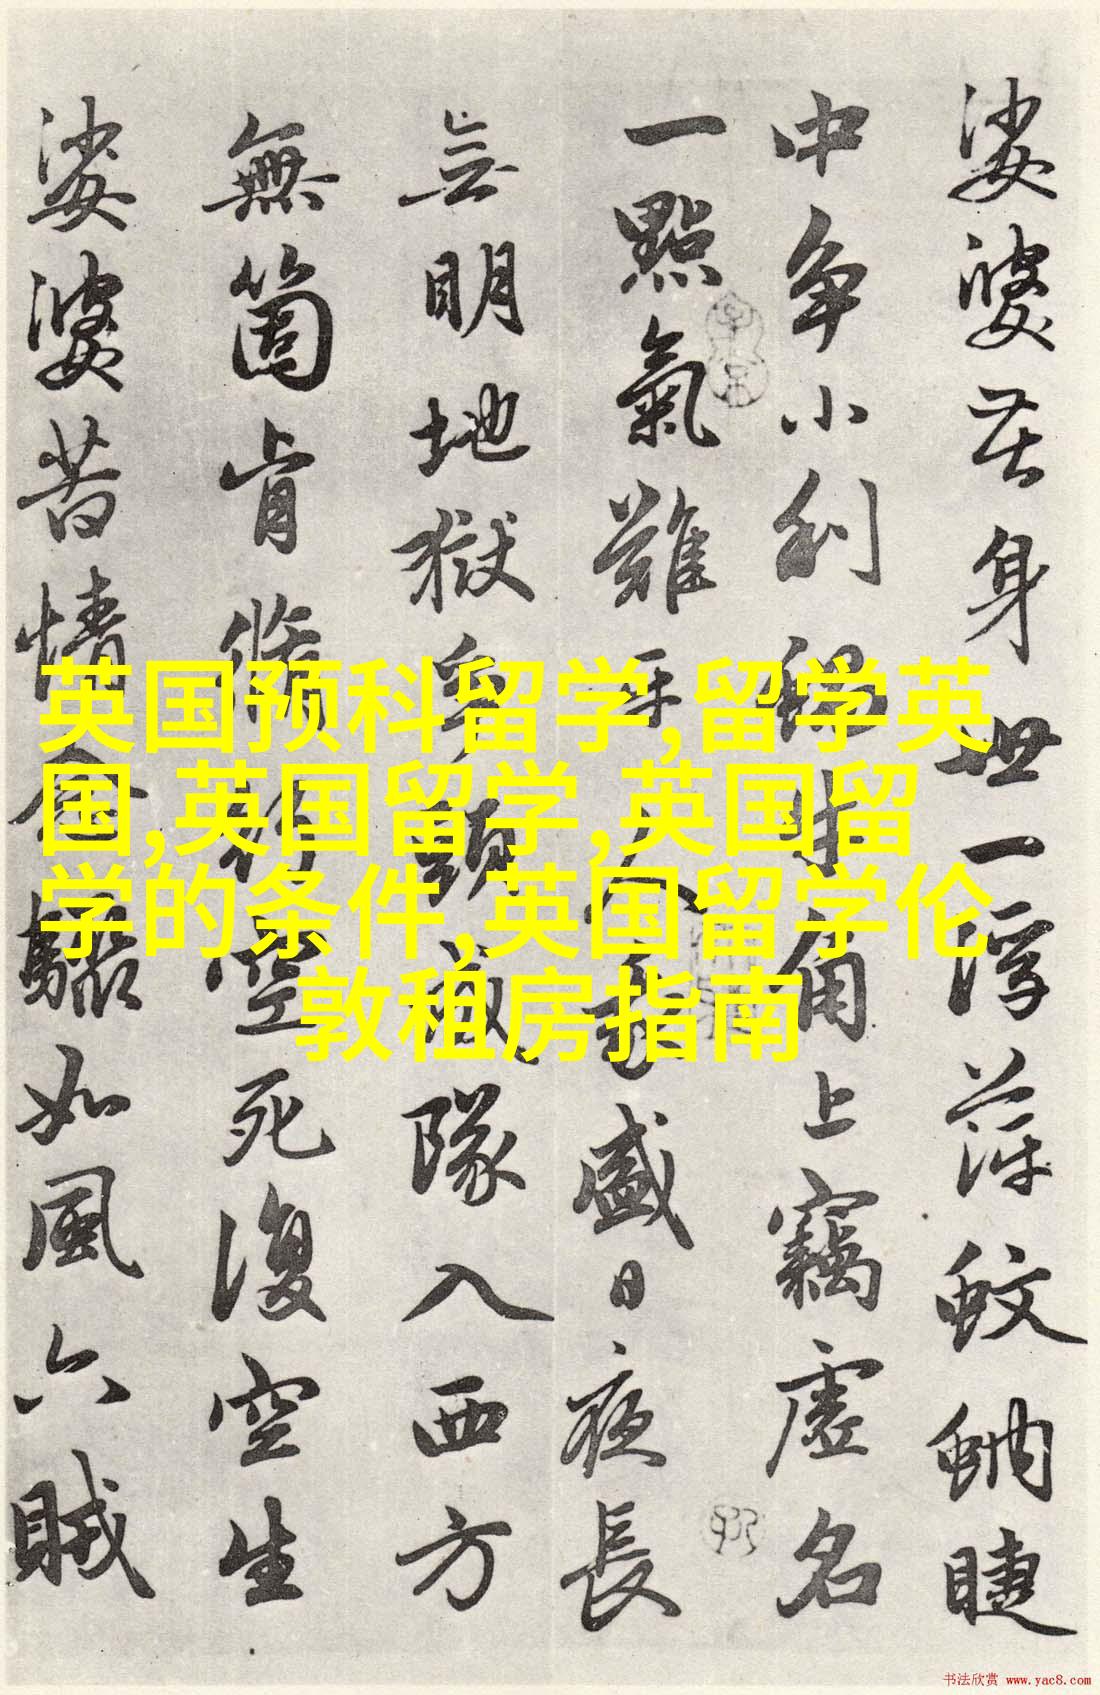 娑婆苦身世一浮萍蚊蚋睫
中争小利蝸牛角上竊虛名
一點氣難平人我盛日夜長
無明地獄爭頭成隊入西方
無箇肯修行空死復空生
娑婆苦情念驟如風六賊
英国预科留学,留学英
国,英国留学,英国留
学的条件,英国留学伦
敦租房指南
书法欣赏 www.yac8.com